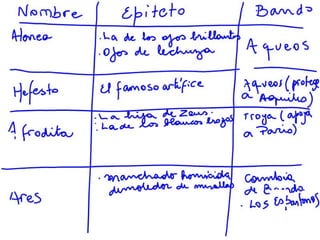 Nombre | Epiteto | Bando
Atenea | · La de los ojos brillantes | Aqueos
· Ojos de lechuza
Hefesto | El famoso artífice | Aqueos (protege
a Aquiles)
Afrodita | · La hija de Zeus. | Troya (apoya
· La de los blancos brazos | a Paris)
Ares | · manchador homicida, | Cambia
demoledor de murallas | de
· Los Espartanos